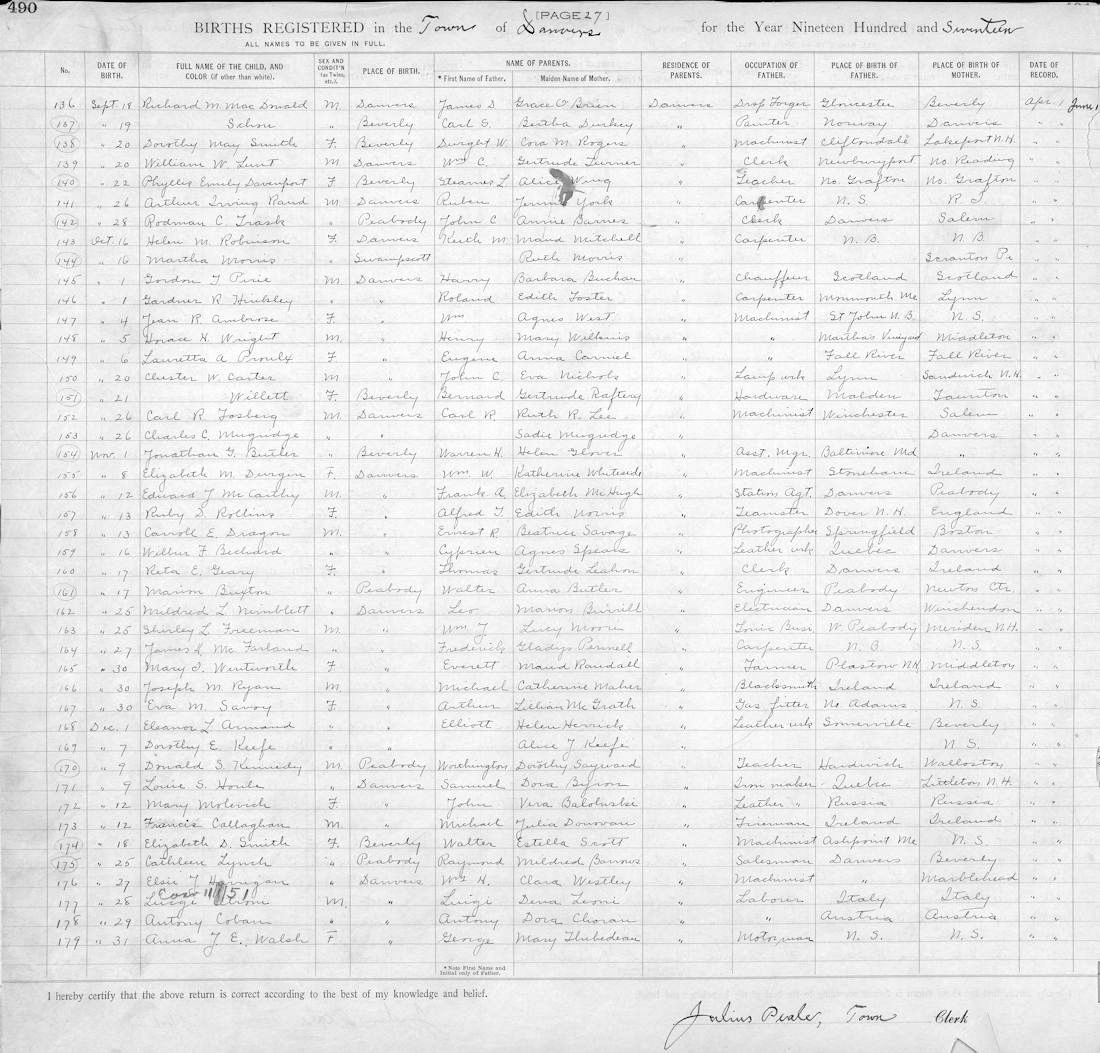 490
[PAGE 27]
BIRTHS REGISTERED in the Town of Danvers for the Year Nineteen Hundred and Seventeen
ALL NAMES TO BE GIVEN IN FULL.
No. DATE OF BIRTH. FULL NAME OF THE CHILD, AND COLOR (if other than white). SEX AND CONDIT'N (as Twins, etc.). PLACE OF BIRTH. NAME OF PARENTS. * First Name of Father. Maiden Name of Mother. RESIDENCE OF PARENTS. OCCUPATION OF FATHER. PLACE OF BIRTH OF FATHER. PLACE OF BIRTH OF MOTHER. DATE OF RECORD.
136 Sept 18 Richard M. Mac Donald M. Danvers James D Grace O'Brien Danvers Drop Forger Gloucester Beverly Apr. 1 June 1
137 " 19 " Beverly Carl E. Bertha Durkey " Painter Norway Danvers " "
138 " 20 Dorothy May Smith F. Beverly Dwight W. Cora M. Rogers " Machinist Cliftondale Lakeport N.H. " "
139 " 20 William W. Lunt M Danvers Wm C. Gertrude Turner " Clerk Newburyport No. Reading " "
140 " 22 Phyllis Emily Davenport F Beverly Stearnes L. Alice Wing " Teacher No. Grafton No. Grafton " "
141 " 26 Arthur Irving Rand M Danvers Ruben Jennie York " Carpenter N. S. R. I. " "
142 " 28 Rodman C. Trask " Peabody John C Annie Barnes " Clerk Danvers Salem " "
143 Oct. 16 Helen M. Robinson F. Danvers Keith M. Maud Mitchell " Carpenter N. B. N. B. " "
144 " 16 Martha Morris " Swampscott Ruth Morris " Scranton Pa " "
145 " 1 Gordon J Pirie M. Danvers Harry Barbara Buchan " Chauffeur Scotland Scotland " "
146 " 1 Gardner R Hinkley " " Roland Edith Foster " Carpenter Monmouth Me Lynn " "
147 " 4 Jean R. Ambrose F. " Wm Agnes West " Machinist St John N. B. N. S. " "
148 " 5 Horace H. Wright M. " Henry Mary Wilkins " " Martha's Vineyard Middleton " "
149 " 6 Lauretta A Proulx F. " Eugene Anna " Fall River Fall River " "
150 " 20 Chester W. Carter M " John C. Eva Nichols " Lamp wrk Lynn Sandwich N.H. " "
151 " 21 Willett F. Beverly Bernard Gertrude Raftery " Hardware Malden Taunton " "
152 " 26 Carl R Fosberg M. Danvers Carl R. Ruth R. Lee " Machinist Winchester Salem " "
153 " 26 Charles C. Mugridge " " Sadie Mugridge " Danvers " "
154 Nov. 1 Jonathan G. Butler " Beverly Warren H. Helen Glover " Asst. Mgr. Baltimore Md " " "
155 " 8 Elizabeth M. Durgin F. Danvers Wm. W. Katherine Whiteside " Machinist Stoneham Ireland " "
156 " 12 Edward J Mc Carthy M. " Frank A Elizabeth Mc Hugh " Station Agt. Danvers Peabody " "
157 " 13 Ruby D. Rollins F. " Alfred T Edith Norris " Teamster Dover N.H. England " "
158 " 13 Carroll E. Dragon M. " Ernest R Beatrice Savage " Photographer Springfield Boston " "
159 " 16 Wilbur F Bechard " " Cyprien Agnes Speaks " Leather wrk Quebec Danvers " "
160 " 17 Reta E. Geary F. " Thomas Gertrude Leahon " Clerk Danvers Ireland " "
161 " 17 Marion Buxton " Peabody Walter Anna Butler " Engineer Peabody Newton Ctr. " "
162 " 25 Mildred L Nimblett " Danvers Leo Marion Burrill " Electrician Danvers Winchendon " "
163 " 25 Shirley L. Freeman M. " Wm J. Lucy Moore " W. Peabody Meriden N.H. " "
164 " 27 James L Mc Farland " " Frederick Gladys Pennell " Carpenter N. B. N. S. " "
165 " 30 Mary I. Wentworth F " Everett Maud Randall " Farmer Plastow NH Middleton " "
166 " 30 Joseph M. Ryan M. " Michael Catherine Maher " Blacksmith Ireland Ireland " "
167 " 30 Eva M. Savoy F " Arthur Lillian Mc Grath " Gas fitter No Adams N. S. " "
168 Dec. 1 Eleanor L Armand " " Elliott Helen Herrick " Leather wrk Somerville Beverly " "
169 " 7 Dorothy E. Keefe " " Alice J Keefe " N. S. " "
170 " 9 Donald S. Kennedy M. Peabody Worthington Dorothy Sayward " Teacher Hardwich Wallaston " "
171 " 9 Louis S. Houle " Danvers Samuel Dora Byron " Iron molder Quebec Littleton N.H. " "
172 " 12 Mary Molevich F. " John Vera " Leather " Russia Russia " "
173 " 12 Francis Callaghan M. " Michael Julia Donovan " Fireman Ireland Ireland " "
174 " 18 Elizabeth D. Smith F. Beverly Walter Estella Scott " Machinist Ashpoint Me N. S. " "
175 " 25 Cathleen Lynch " Peabody Raymond Mildred Barrows " Salesman Danvers Beverly " "
176 " 27 Elsie " Danvers Wm H. Clara Westley " Machinist " Marblehead " "
177 " 28 Luigi M. " Luigi Dena Leoni " Laborer Italy Italy " "
178 " 29 Antony Coban " " Antony Dora Choran " " Austria Austria " "
179 " 31 Anna J. E. Walsh F " George Mary Thibedeau " Motorman N. S. N. S. " "
* Note First Name and Initial only of Father.
I hereby certify that the above return is correct according to the best of my knowledge and belief.
Julius Peale, Town Clerk